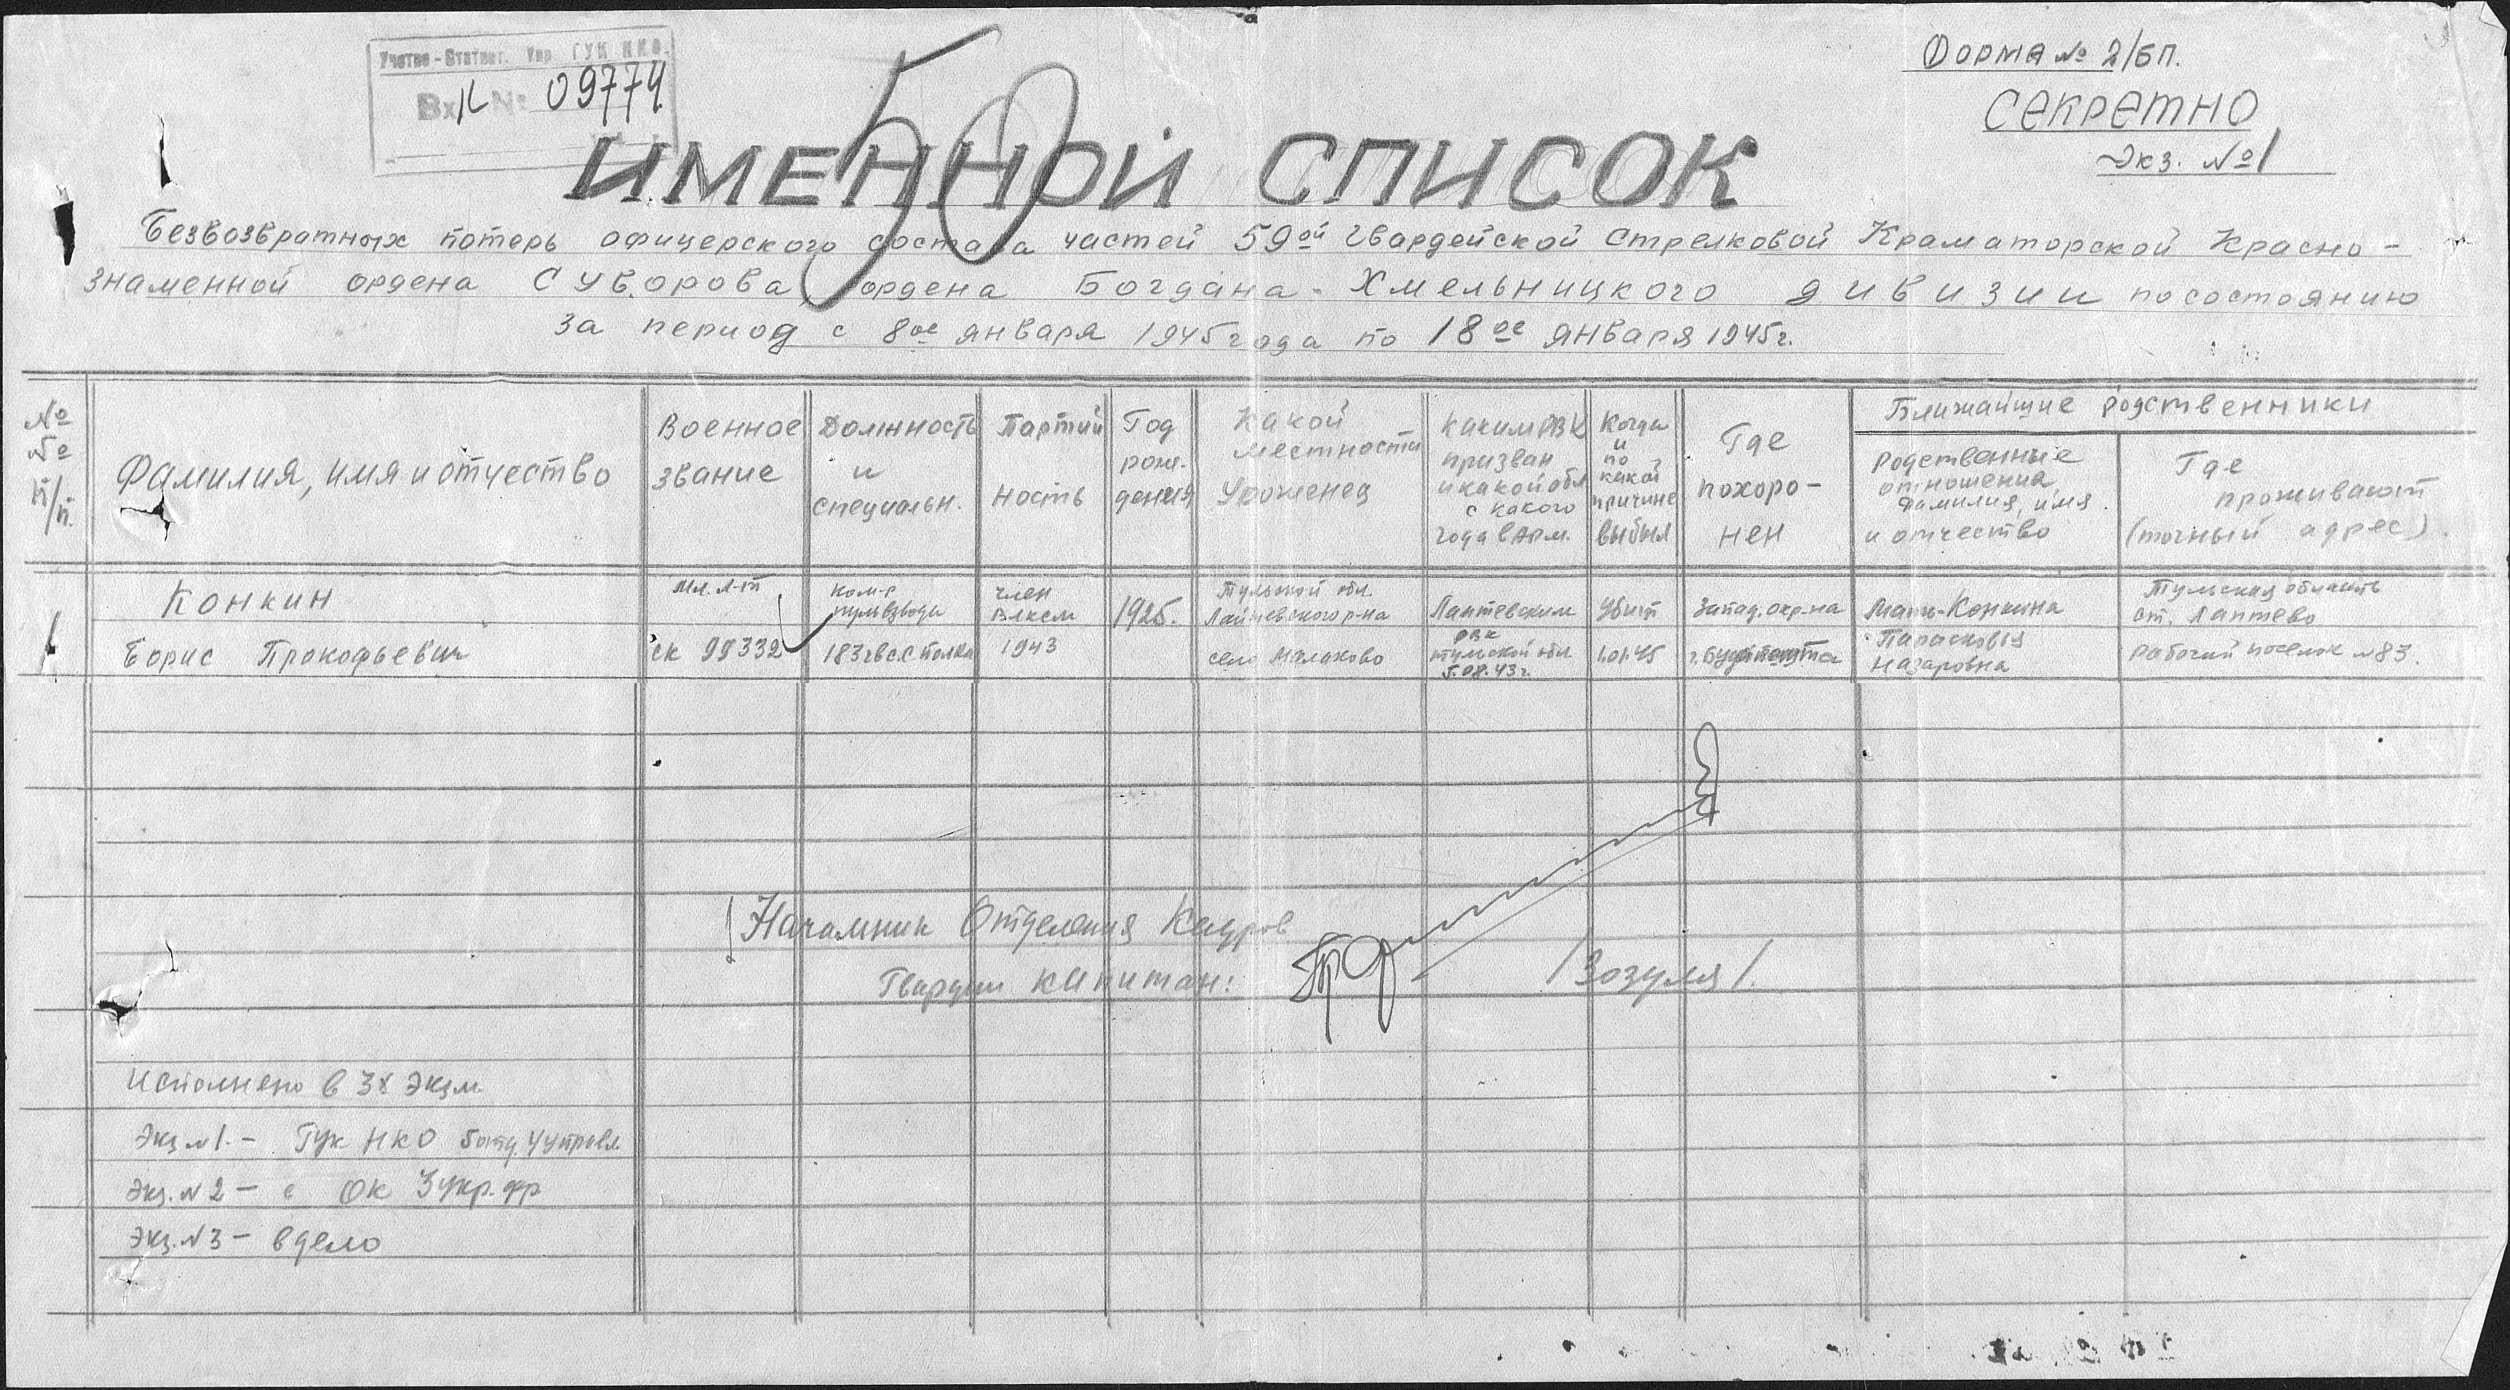 Учетно-Статист. Упр. ГУК НКО.
Вх № 09774
50
Форма № 2/БП.
Секретно
Экз. №1
ИМЕННОЙ СПИСОК
Безвозвратных потерь офицерского состава частей 59ой Гвардейской Стрелковой Краматорской Красно-
знаменной ордена Суворова, ордена Богдана-Хмельницкого дивизии по состоянию
за период с 8ое января 1945 года по 18ое января 1945г.
№ № п/п.
Фамилия, имя и отчество
Военное звание
Должность и специальн.
Партийность
Год рождения
Какой местности Уроженец
Каким РВК призван и какой обл с какого года в Арм.
Когда и по какой причине выбыл
Где похоро-нен
Ближайшие родственники
Родственные отношения, Фамилия, имя и отчество
Где проживают (точный адрес).
1
Конкин
Борис Прокофьевич
Мл. л-т
ск 99332
Ком-р пульвзвода
183 гв.с.с полка
член ВЛКСМ
1943
1925.
Тульской обл.
р-на
село Малахово
Лаптевским
РВК
Тульской обл
5.08.43г.
Убит
Запад. окр-на
г. Будапешта
Мать-Конкина
Парасковья
Назаровна
Тульская область
ст. Лаптево
рабочий поселок №83.
Начальник Отделения Кадров
Гвардии капитан:
/Зозуля/.
Исполнено в 3х Экзм
Экз №1.- Гук НКО
Экз. №2- с ОК 3 укр. фр
Экз. №3- в дело